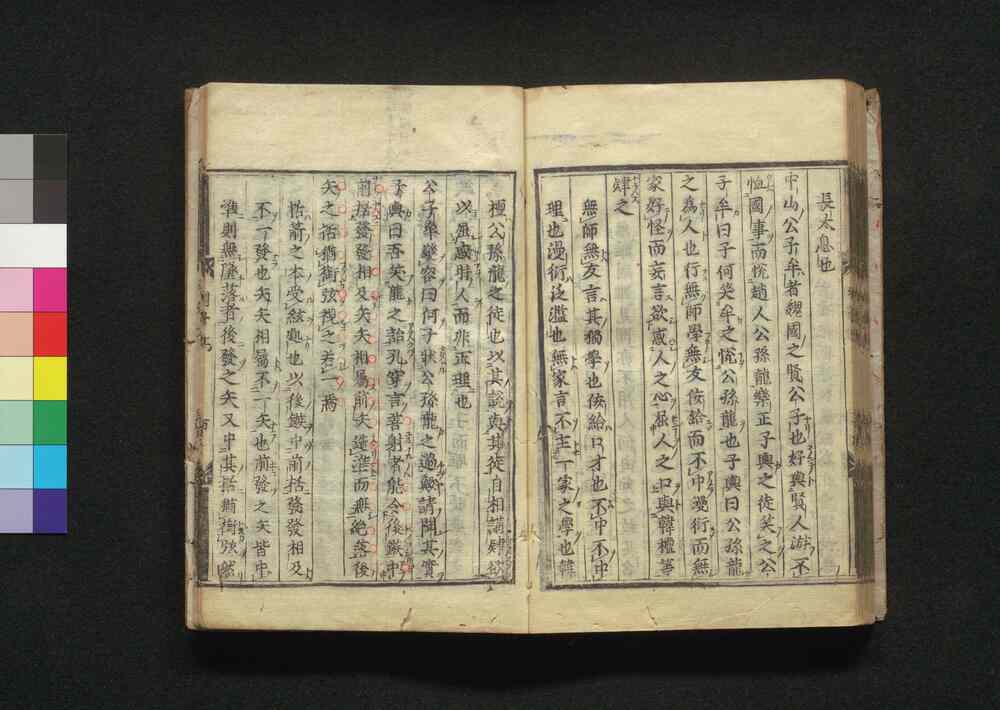 長太息也
中山公子牟者魏國之賢公子也好與賢人游不
恤國事而悅趙人公孫龍樂正子輿之徒笑之公
子牟曰子何笑牟之悅公孫龍也子輿曰公孫龍
之爲人也行無師學無友佞給而不中漫衍而無
家好怪而妄言欲惑人之心屈人之口與韓檀等
肄之
無師無友言其獨學也佞給口才也不中不中
理也漫衍泛濫也無家言不主一家之學也韓
檀公孫龍之徒也以其說與其徒自相講肄欲
以蠱惑時人而非正理也
公子牟變容曰何子狀公孫龍之過歟請聞其實
子輿曰吾笑龍之詒孔穿言善射者能令後鏃中
前括發發相及矢矢相屬前矢造準而無絶落後
矢之括猶銜弦視之若一焉
括箭之本受弦處也以後鏃中前括發發相及
不一發也矢矢相屬不一矢也前發之矢皆中
準則無墜落者後發之矢又中其括猶銜弦然